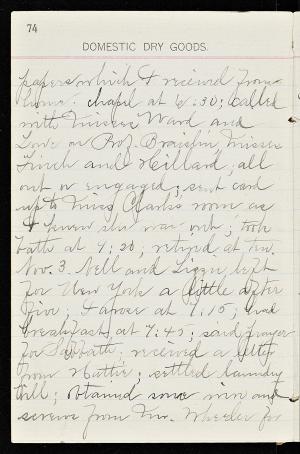 74
DOMESTIC DRY GOODS.
papers which I received from
home; chapel at 6:30; called
with Misses Ward and
Lord on Prof. Braislin, Misses
Finch and Hillard; all
out or engaged; sent card
up to Miss Clark's room as
I knew she was out; took
bath at 9:20; retired at ten.
Nov. 3. Nell and Lizzie left
for New York a little after
five; I arose at 7:15; had
breakfast at 7:45; said prayer
for Sabbath; received a letter
from Hattie; settled laundry
bill; obtained some iron and
screws from Mr. Wheeler for